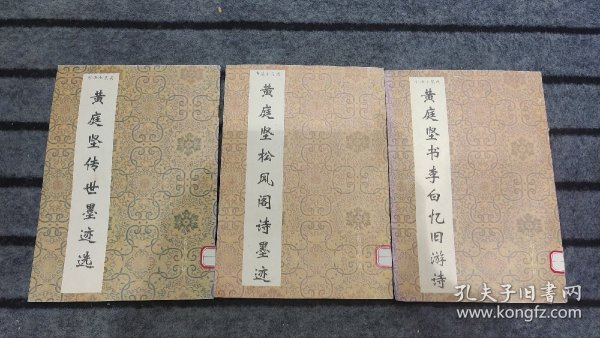 黄庭坚传世墨迹选
黄庭坚松风阁诗墨迹
黄庭坚书李白忆旧游诗
孔夫子旧书网
www.kongfz.com